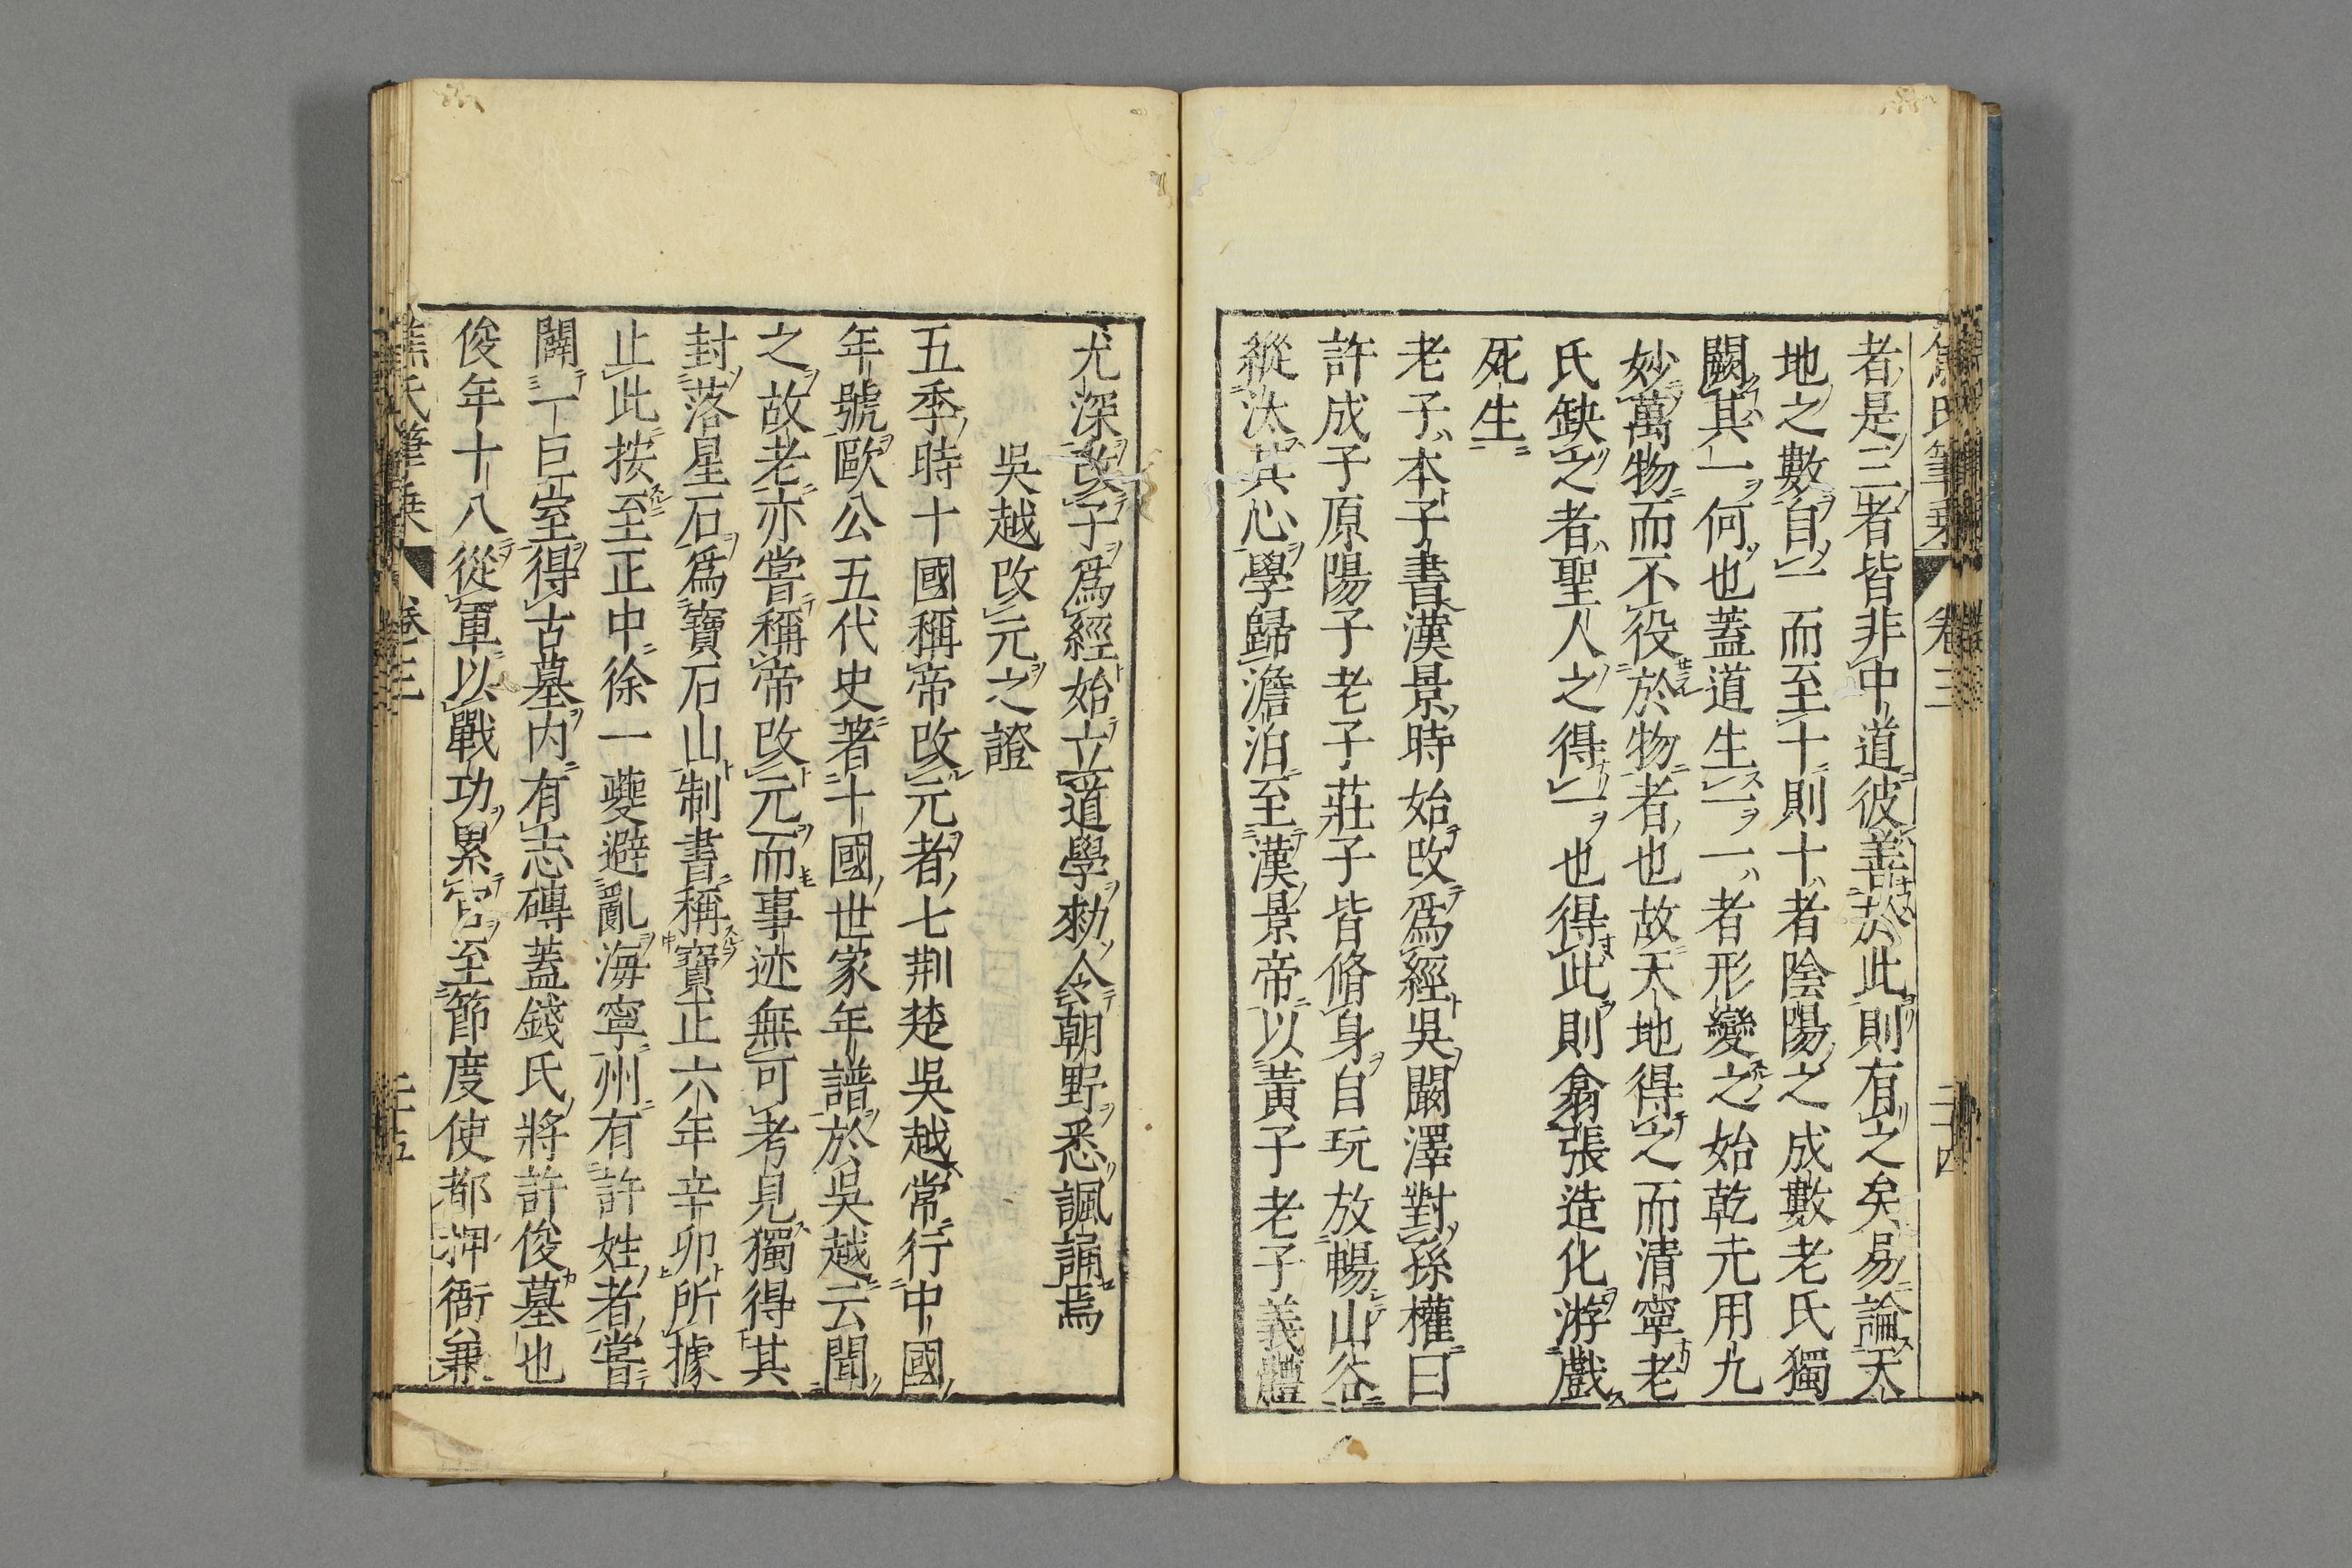 焦氏筆乗 卷三 二十四
者是三者皆非中道彼善於此則有之矣易論天
地之數自一而至十則十者陰陽之成數老氏獨
闕其一何也蓋道生一一者形變之始乾元用九
妙萬物而不役於物者也故天地得之而清寧老
氏缺之者聖人之得一也得此則翕張造化游戲
死生
老子本子書漢景時始改爲經吳闞澤對孫權曰
許成子原陽子老子莊子皆脩身自玩放暢山谷
縱汰其心學歸澹泊至漢景帝以黃子老子義軆
尤深改子爲經始立道學勑令朝野悉諷誦焉
吳越改元之證
五季時十國稱帝改元者七荆楚吳越常行中國
年號歐公五代史著十國世家年譜於吳越云聞
之故老亦嘗稱帝改元而事迹無可考見獨得其
封落星石爲寶石山制書稱寶正六年辛卯所據
止此按至正中徐一夔避亂海寧州有許姓者嘗
闢一巨室得古墓内有志磚蓋錢氏將許俊墓也
俊年十八從軍以戰功累官至節度使都押衙兼
焦氏筆乗 卷三 二十五